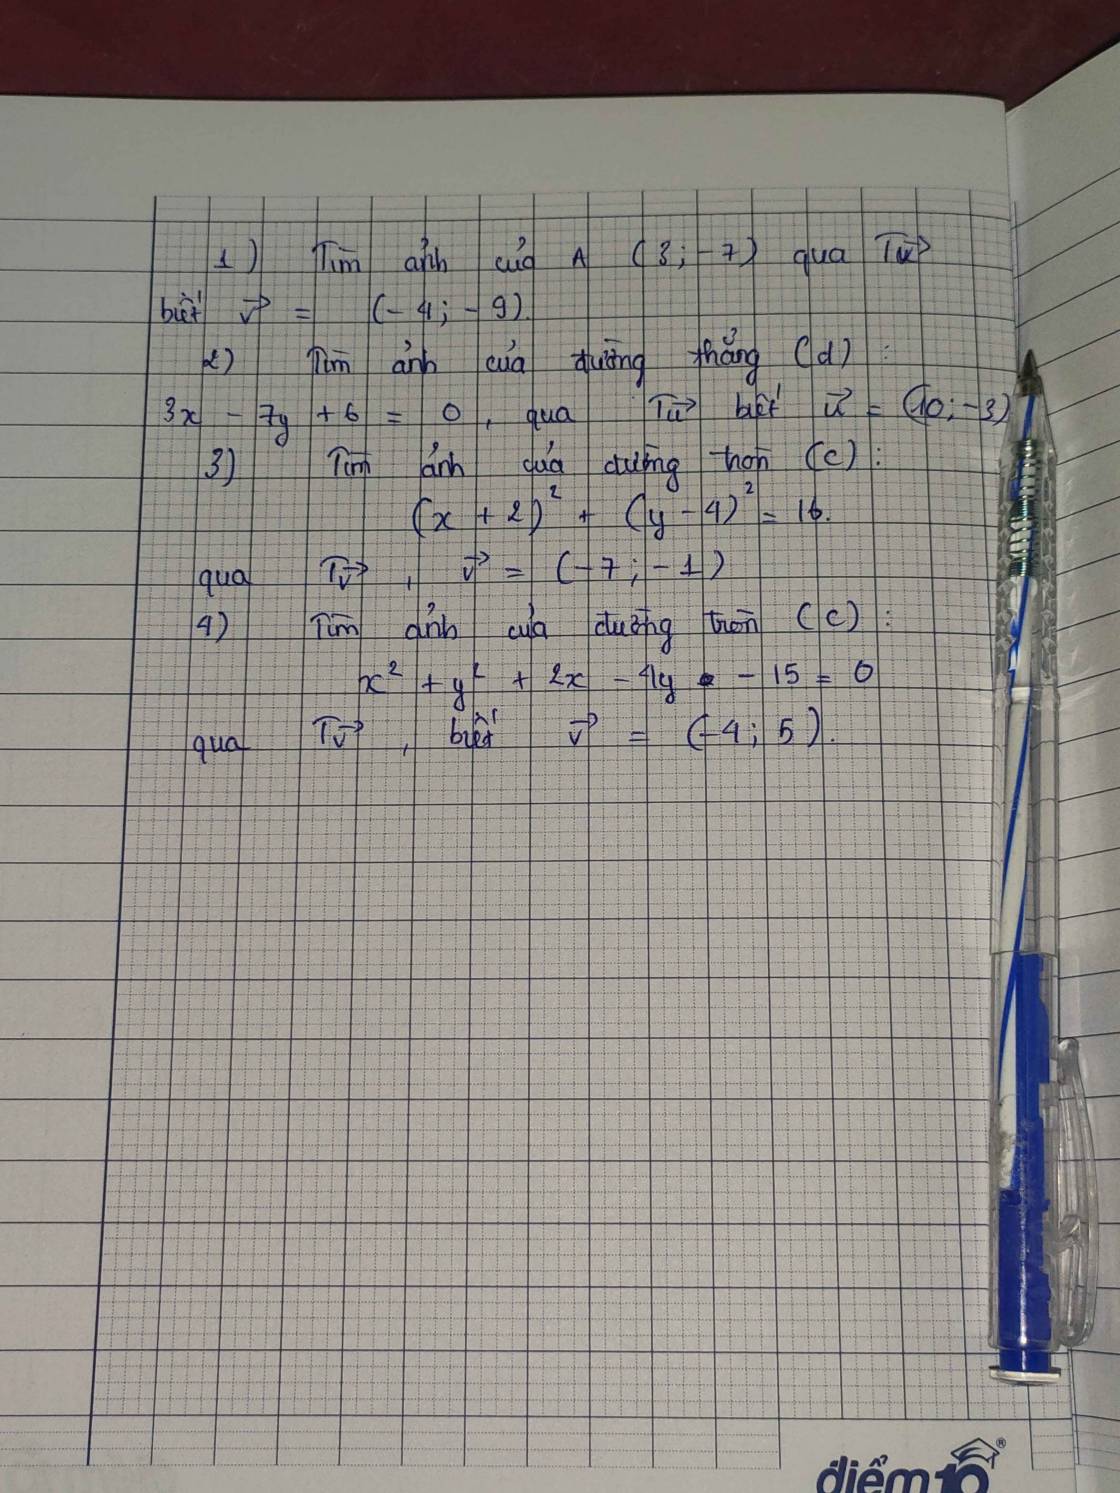 1) Tìm ảnh của A (3; -7) qua Tv→
biết v→ = (-4; -9).
2) Tìm ảnh của đường thẳng (d) :
3x - 7y + 6 = 0, qua Tu→ biết u→ = (10; -3)
3) Tìm ảnh của đường tròn (C) :
(x + 2)² + (y - 4)² = 16.
qua Tv→, v→ = (-7; -1)
4) Tìm ảnh của đường tròn (C) :
x² + y² + 2x - 4y - 15 = 0
qua Tv→, biết v→ = (-4; 5).
điểm10®